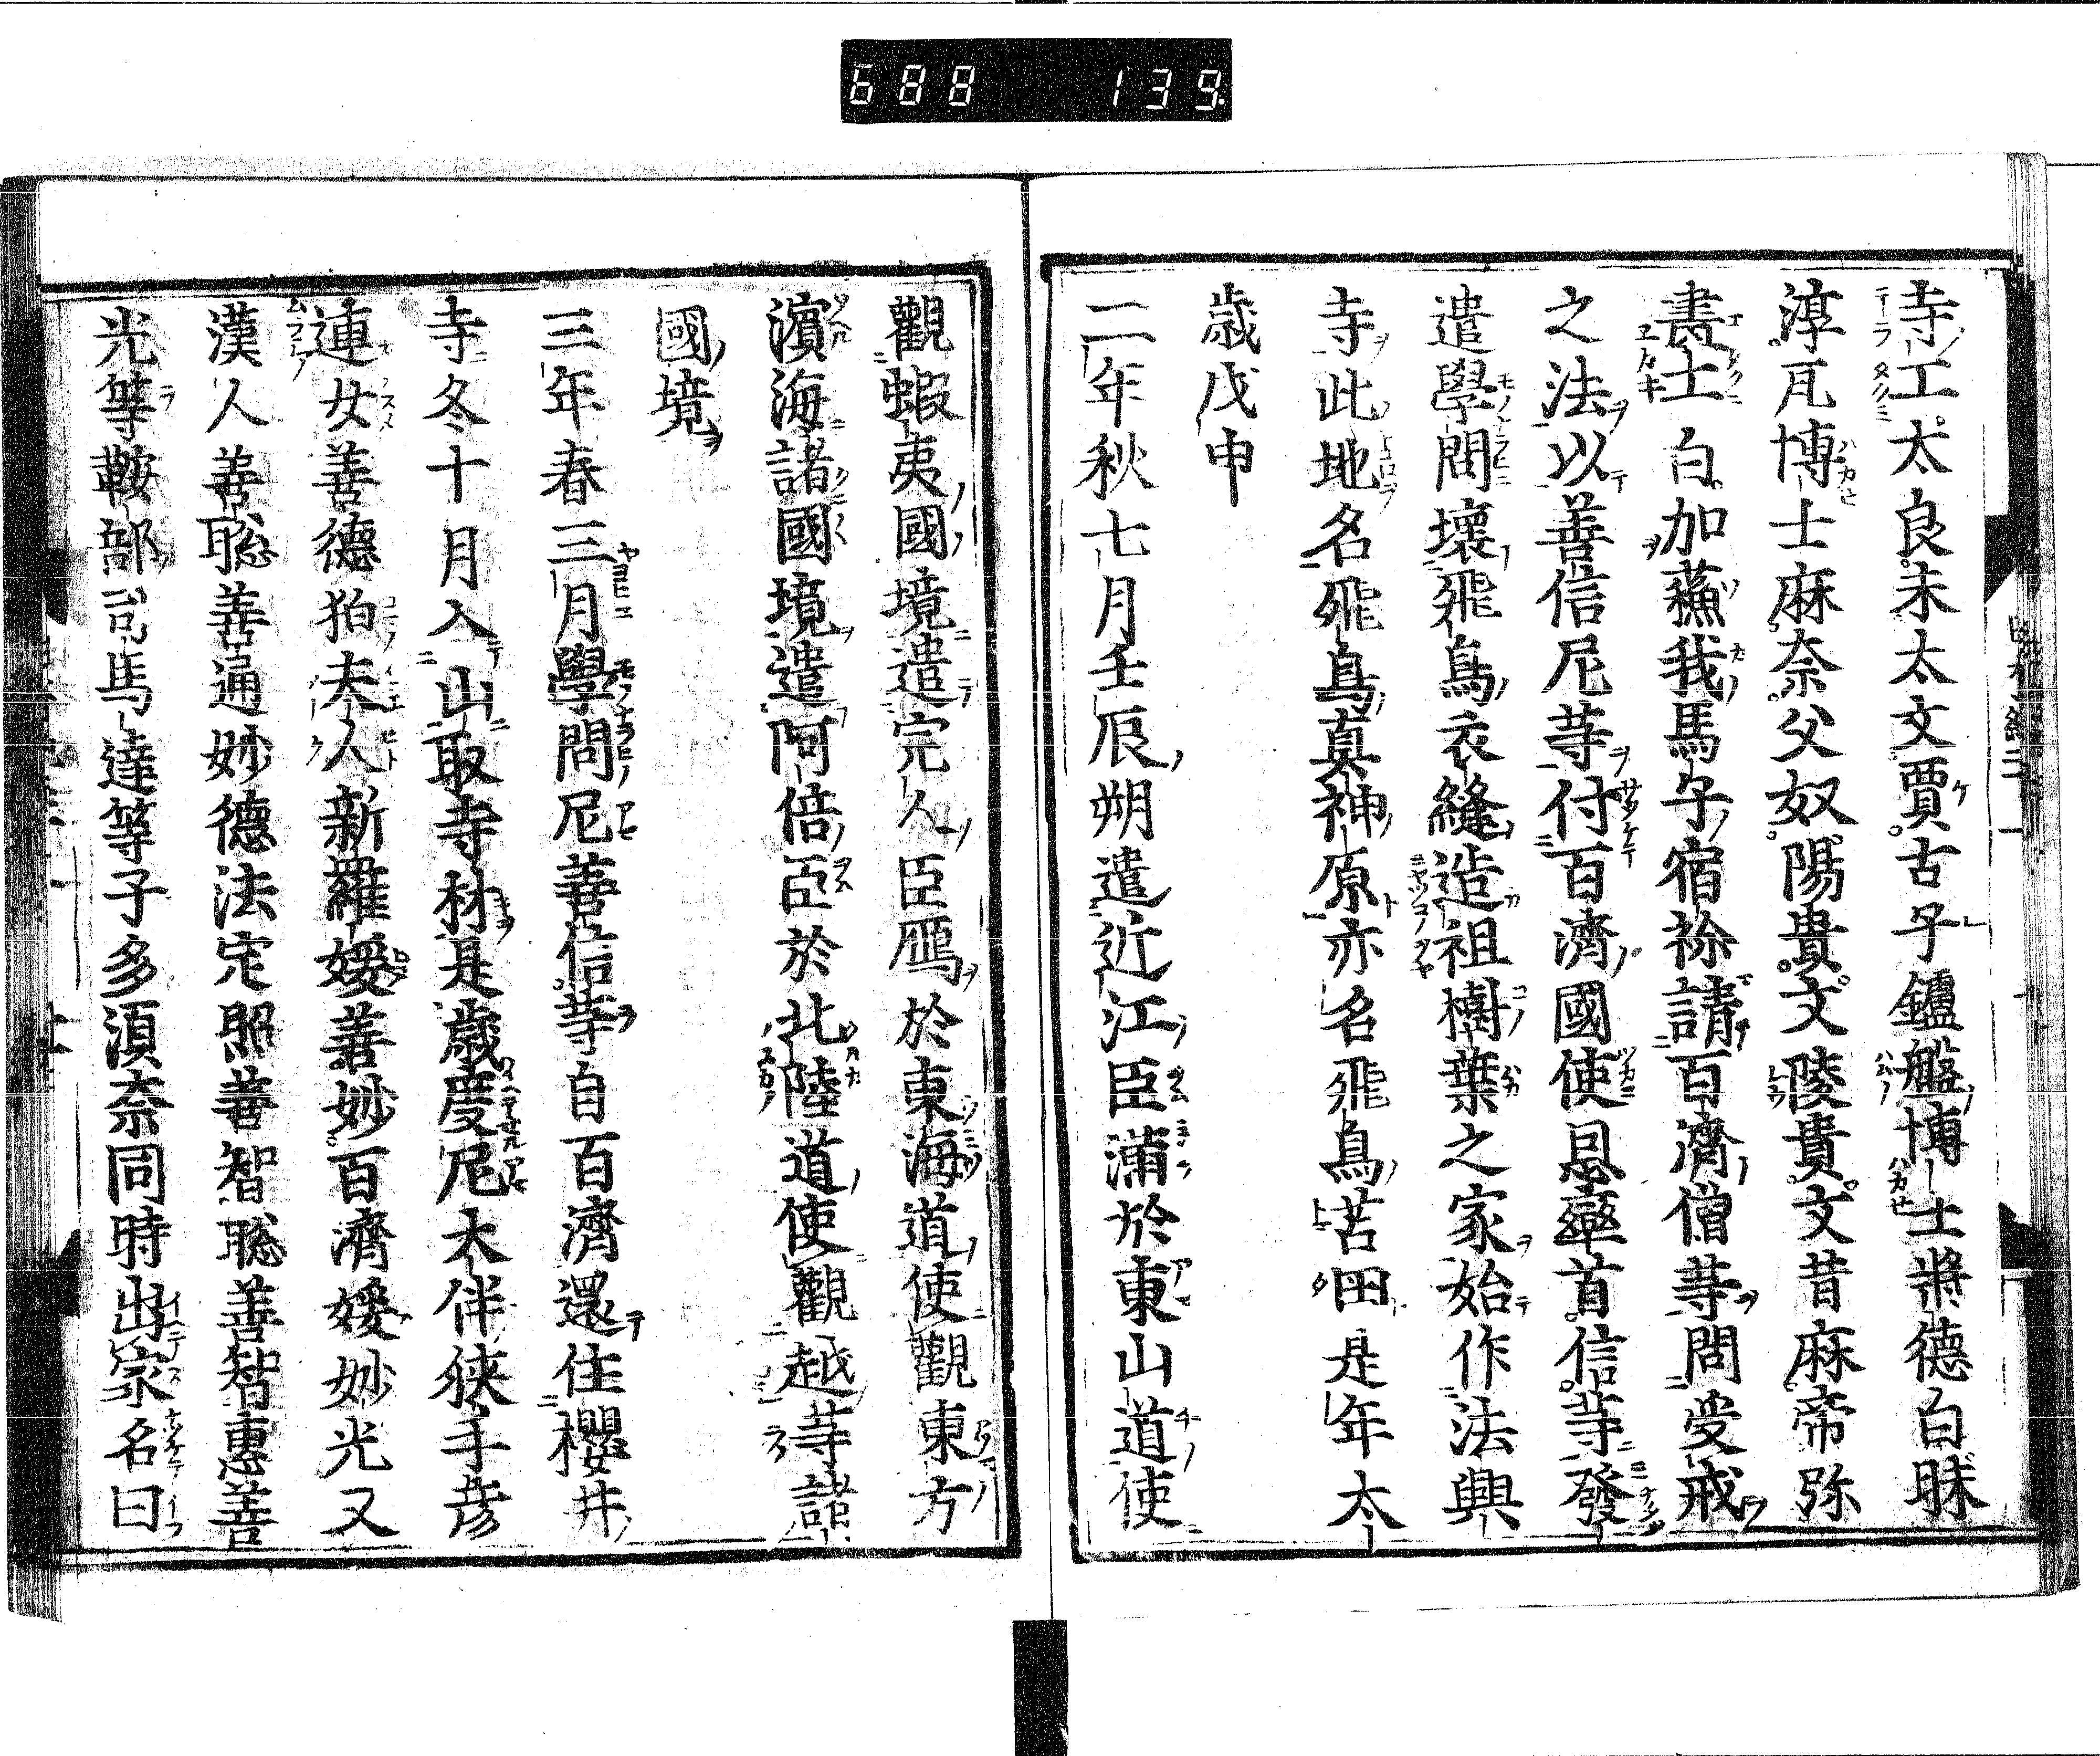 688 139
寺工太良未太文賈古子鑪盤博士將德白昧
淳瓦博士麻奈父奴陽貴文陵貴文昔麻帝弥
畫士白加蘓我馬子宿祢請百濟僧等問受戒
之法以善信尼等付百濟國使恩率首信等發
遣學問壞飛鳥衣縫造祖樹葉之家始作法興
寺此地名飛鳥真神原亦名飛鳥苫田是年太
歳戊申
二年秋七月壬辰朔遣近江臣蒲於東山道使
觀蝦夷國境遣完人臣鴈於東海道使觀東方
濱海諸國境遣阿倍臣於北陸道使觀越等諸
國境
三年春三月學問尼善信等自百濟還住櫻井
寺冬十月入山取寺材是歳度尼大伴狹手彦
連女善德狛夫人新羅媛善妙百濟媛妙光又
漢人善聡善通妙德法定照善智聡善智惠善
光等鞍部司馬達等子多須奈同時出家名曰